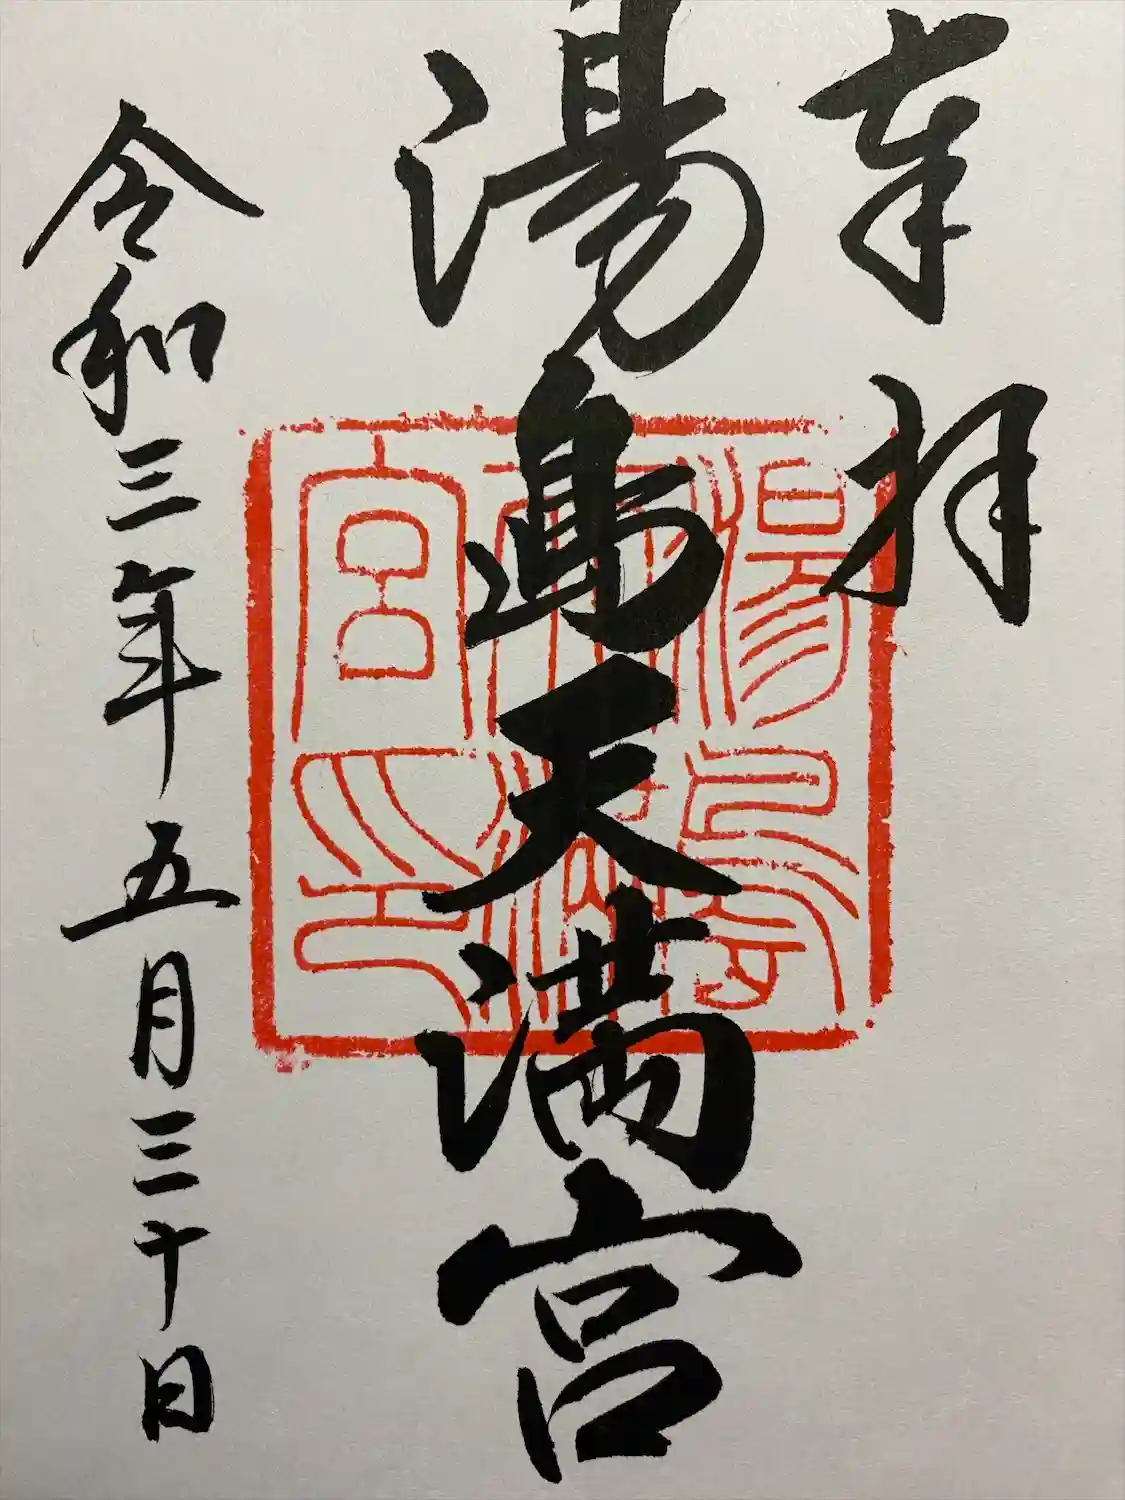 奉拝
湯島天満宮
令和三年五月三十日
湯島
天満
宮印